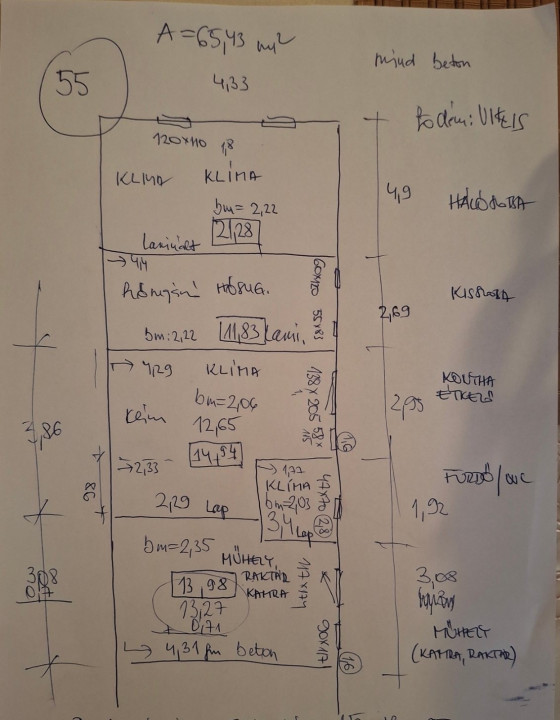 A = 65,43 m²
mind beton
55
4,33
120x110 1,8
KLIMA KLÍMA
4,9
HÁLÓSZOBA
bm = 2,22
21,28
Laminált
→ 4,4
60x120
HŐSUG.
KISSZOBA
2,69
55x83
bm: 2,22
11,83
Lami.
→ 4,29
KLÍMA
bm = 2,06
KONYHA
ÉTKEZŐ
2,95
12,65
3,86
14,94
→ 2,33
98
→ 1,72
KLÍMA
bm = 2,03
3,4 Lap
28
47x70
FÜRDŐ/WC
1,92
2,29 Lap
bm = 2,35
MŰHELY
RAKTÁR
KAMRA
3,08
0,7
13,98
13,27
+ 0,71
3,08
MŰHELY
(KAMRA, RAKTÁR)
90x117
16
→ 4,31 fm beton